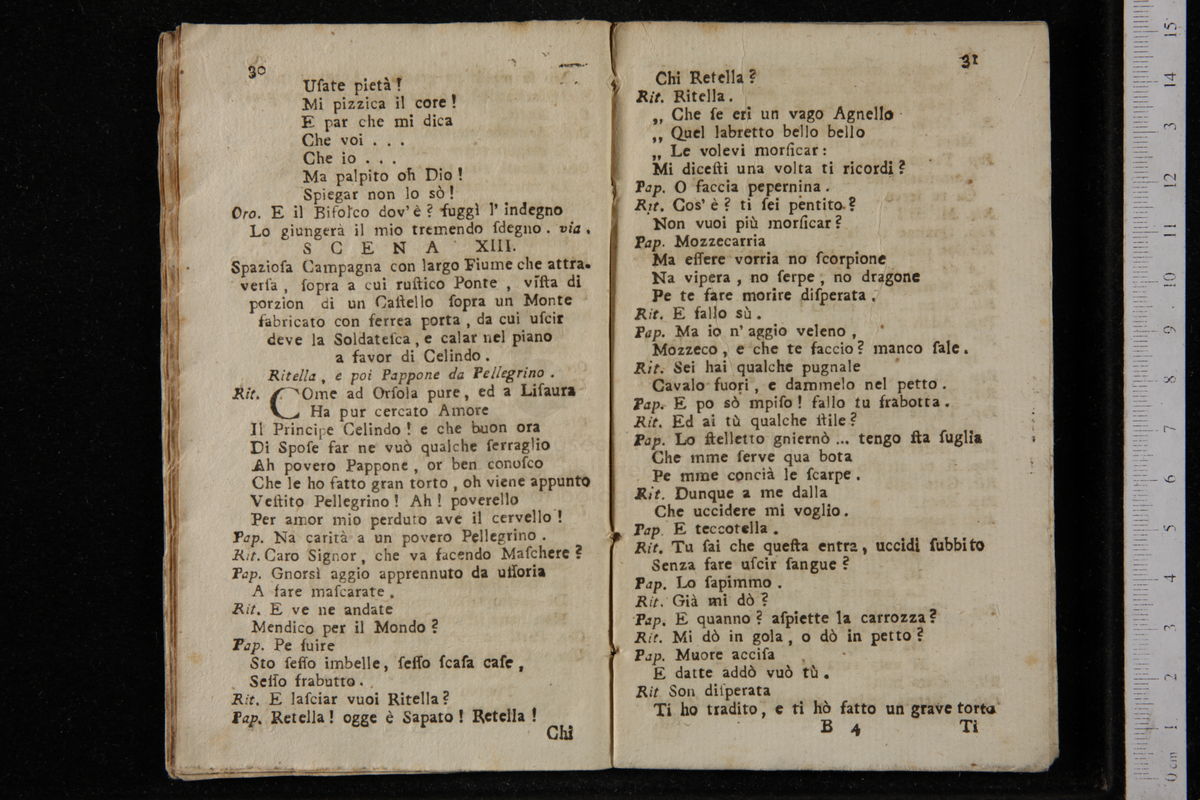 30
Uſate pietà !
Mi pizzica il core !
E par che mi dica
Che voi . . .
Che io . . .
Ma palpito oh Dio !
Spiegar non lo sò !
Oro. E il Bifolco dov' è ? fuggì l' indegno
Lo giungerà il mio tremendo ſdegno . via .
S C E N A XIII.
Spazioſa Campagna con largo Fiume che attra-
verſa , ſopra a cui ruſtico Ponte , viſta di
porzion di un Caſtello ſopra un Monte
fabricato con ferrea porta , da cui uſcir
deve la Soldateſca , e calar nel piano
a favor di Celindo .
Ritella , e poi Pappone da Pellegrino .
Rit. COme ad Orſola pure, ed a Liſaura
Ha pur cercato Amore
Il Principe Celindo ! e che buon ora
Di Spoſe far ne vuò qualche ſerraglio
Ah povero Pappone , or ben conoſco
Che le ho fatto gran torto , oh viene appunto
Veſtito Pellegrino ! Ah ! poverello
Per amor mio perduto ave il cervello !
Pap. Na carità a un povero Pellegrino .
Rit. Caro Signor , che va facendo Maſchere ?
Pap. Gnorsì aggio apprennuto da uſſoria
A fare maſcarate .
Rit. E ve ne andate
Mendico per il Mondo ?
Pap. Pe fuire
Sto ſeſſo imbelle, ſeſſo ſcaſa caſe ,
Seſſo frabutto .
Rit. E laſciar vuoi Ritella ?
Pap. Retella ! ogge è Sapato ! Retella !
Chi
31
Chi Retella ?
Rit. Ritella .
„ Che ſe eri un vago Agnello
„ Quel labretto bello bello
„ Le volevi morſicar :
Mi diceſti una volta ti ricordi ?
Pap. O faccia pepernina .
Rit. Cos' è ? ti ſei pentito ?
Non vuoi più morſicar ?
Pap. Mozzecarria
Ma eſſere vorria no ſcorpione
Na vipera , no ſerpe , no dragone
Pe te fare morire diſperata .
Rit. E fallo sù .
Pap. Ma io n' aggio veleno ,
Mozzeco , e che te faccio ? manco ſale .
Rit. Sei hai qualche pugnale
Cavalo fuori , e dammelo nel petto .
Pap. E po sò mpiſo ! fallo tu frabotta .
Rit. Ed ai tù qualche ſtile ?
Pap. Lo ſtelletto gniernò ... tengo ſta ſuglia
Che mme ſerve qua bota
Pe mme concià le ſcarpe .
Rit. Dunque a me dalla
Che uccidere mi voglio .
Pap. E teccotella .
Rit. Tu ſai che queſta entra , uccidi ſubbito
Senza fare uſcir ſangue ?
Pap. Lo ſapimmo .
Rit. Già mi dò ?
Pap. E quanno ? aſpiette la carrozza ?
Rit. Mi dò in gola , o dò in petto ?
Pap. Muore acciſa
E datte addò vuò tù .
Rit Son diſperata
Ti ho tradito , e ti hò fatto un grave torto
B 4
Ti